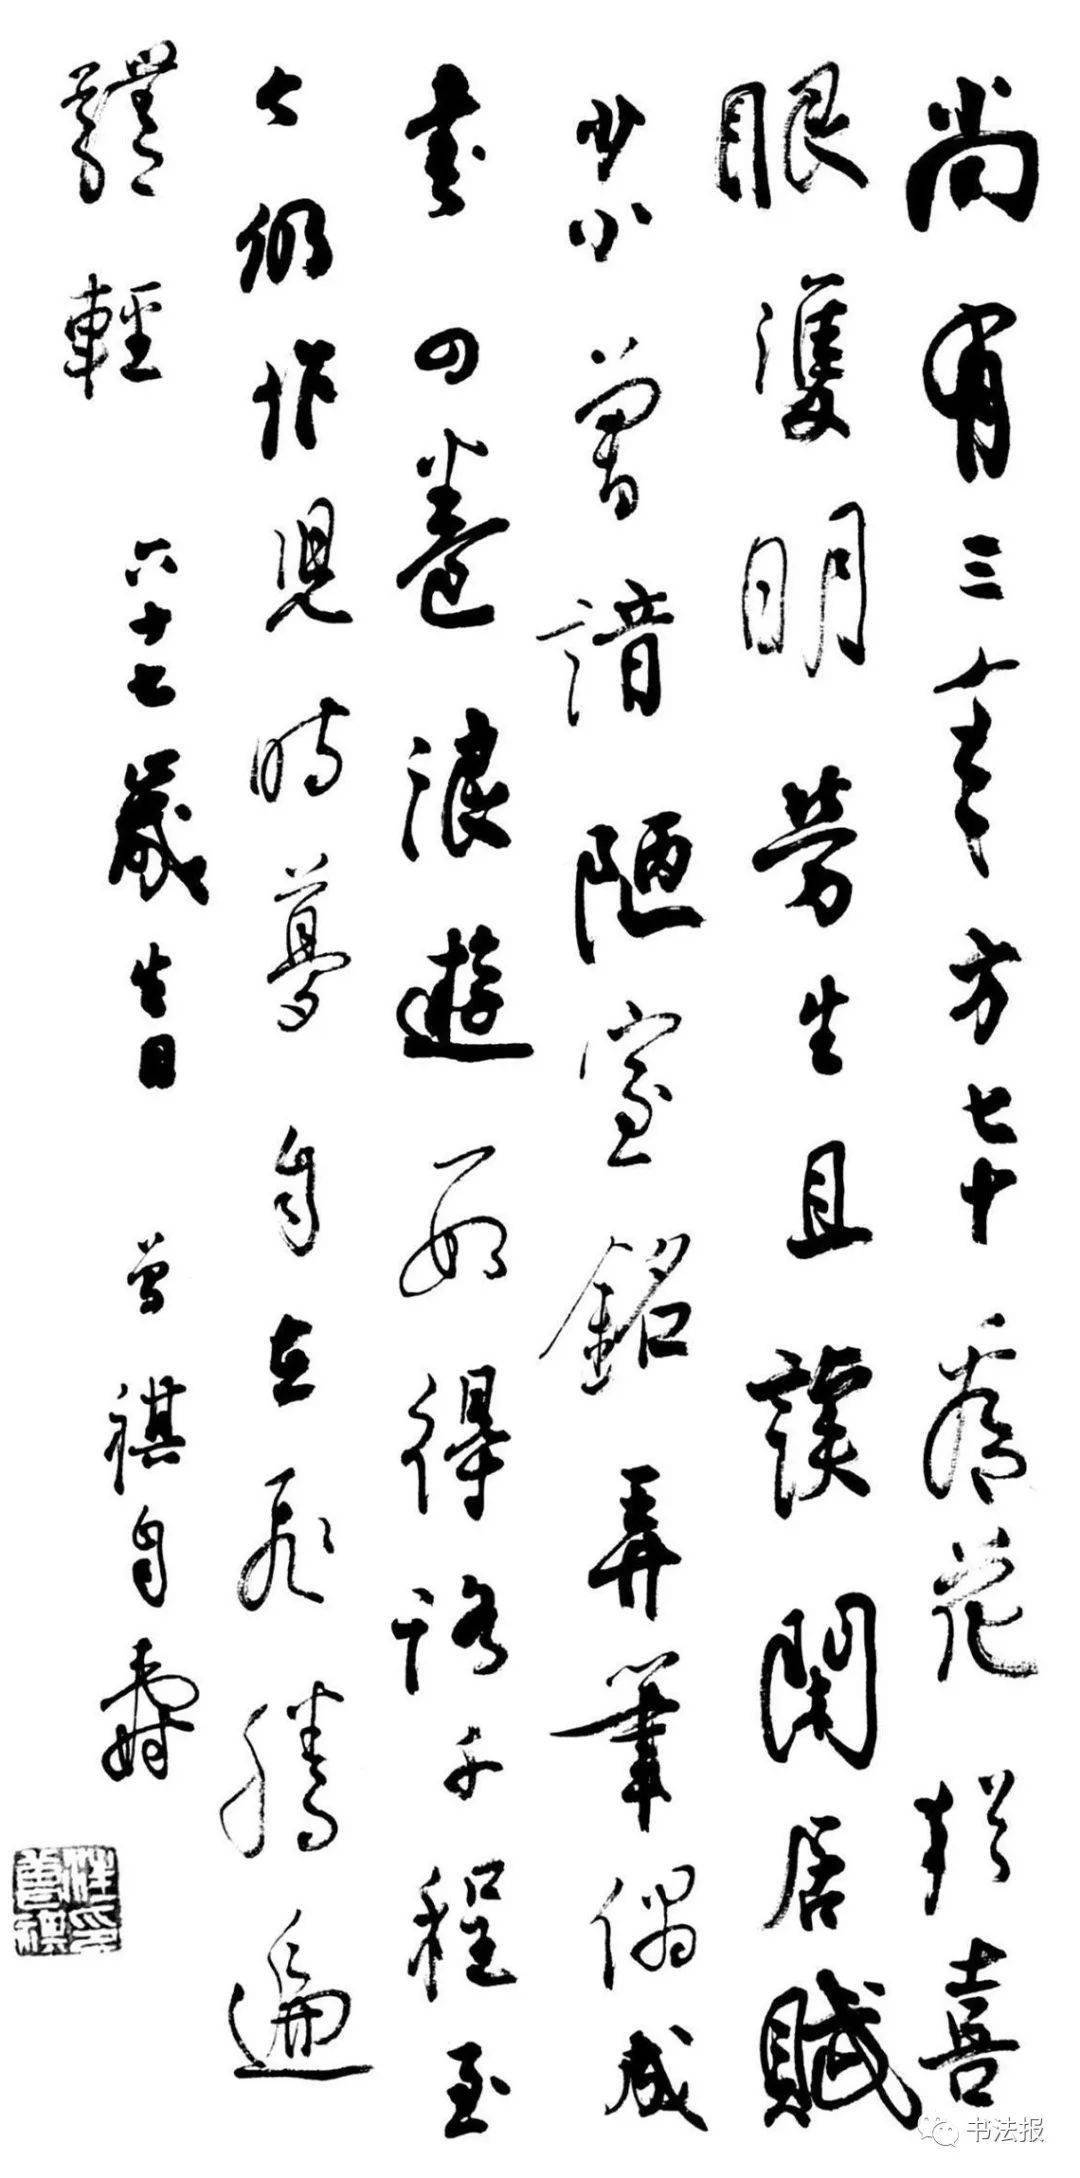 尚有三年方七十看花猶喜
眼雙明勞生且讀閑居賦
少小曾諳陋室銘弄筆偶成
書四卷浪遊數得路千程至
今仍作兒時夢自在飛騰遍
體輕
六十七歲生日 曾祺自壽
汪曾祺印
书法报